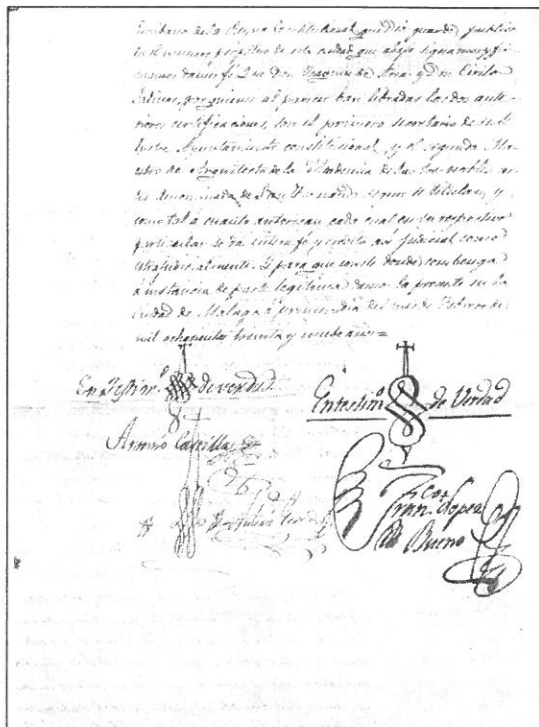 Escribano de la Reyna Constitucional que Dios guarde, publico
en el numero perpetuo de esta ciudad que abajo signamos y fir-
mamos damos fé: Que Don Joaquin de Ana y Don Cirilo
Salinas, por quienes al parecer han libradas las dos ante-
riores certificaciones, son el primero secretario de su Ylustre
Ayuntamiento constitucional, y el segundo Maestro
de Arquitecto de la Academia de las tres nobles ar-
tes denominada de San Fernando segun se titulan, y
como tal a cuanto autorizan cada cual en su respectivo
particular se da entera fé y credito asi judicial como
estrajudicialmente. Y para que conste donde convenga
á instancia de parte legitima damos la presente en la
ciudad de Malaga á primero dia del mes de Febrero de
mil ochocientos treinta y nueve años=
En Testimº de verdad
Entestimº de Verdad
Antonio Castilla
Franco Lopez
Bueno